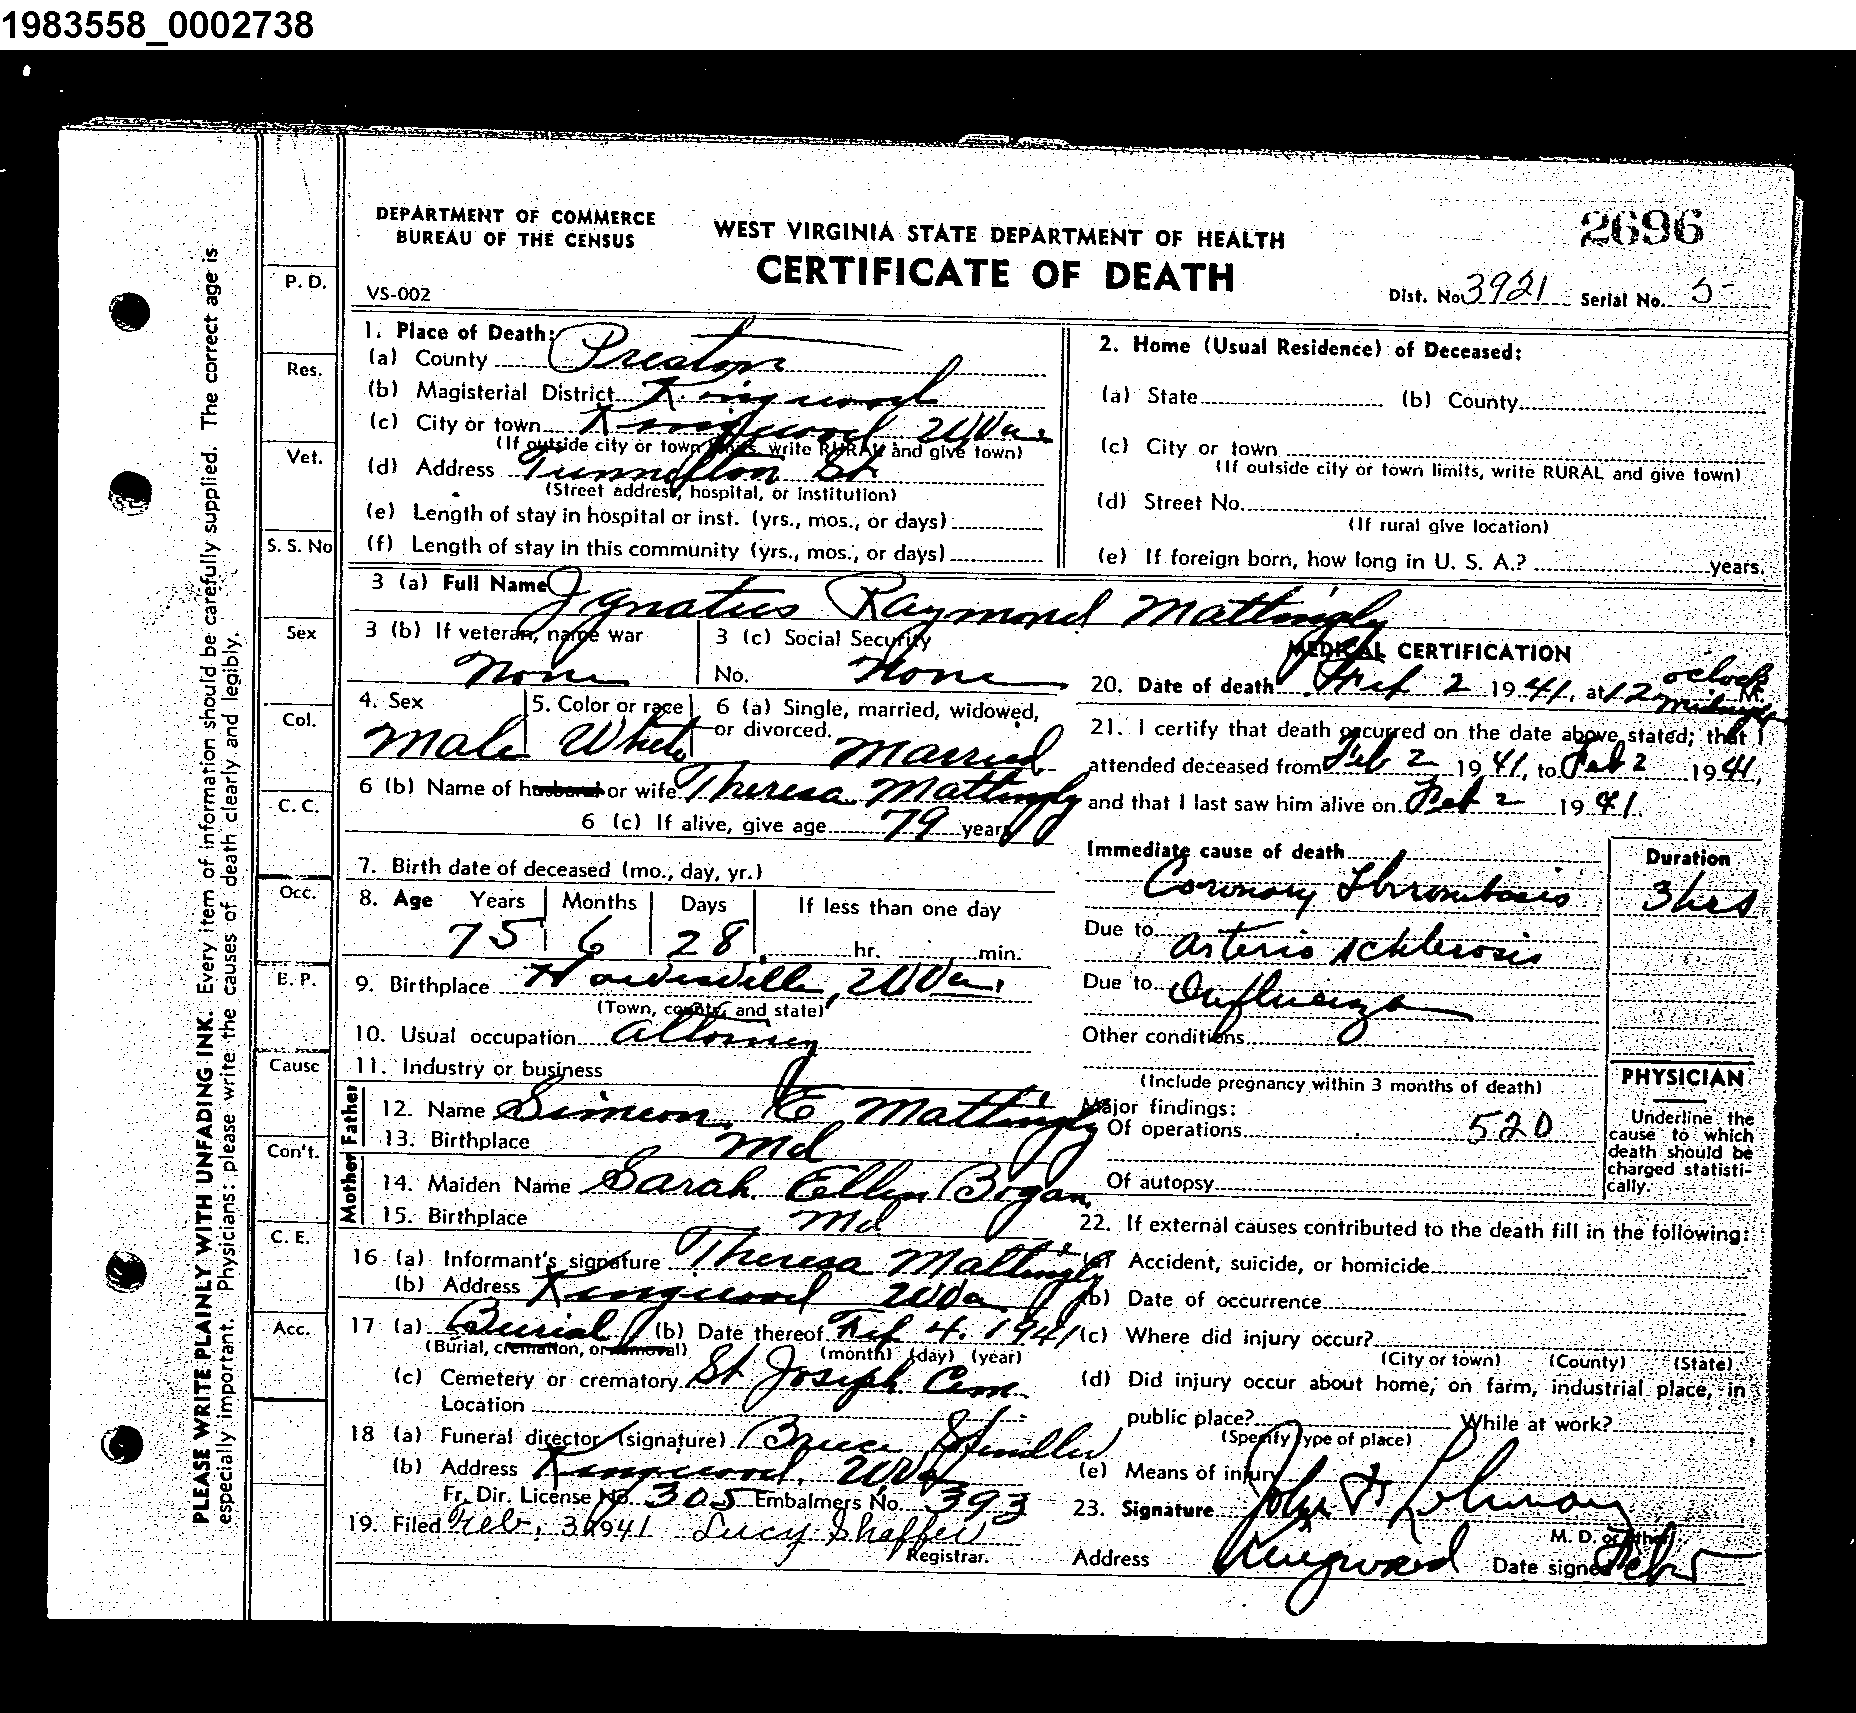 1983558_0002738
DEPARTMENT OF COMMERCE
BUREAU OF THE CENSUS
WEST VIRGINIA STATE DEPARTMENT OF HEALTH
2696
CERTIFICATE OF DEATH
VS-002
Dist. No. 3921 Serial No. 5
PLEASE WRITE PLAINLY WITH UNFADING INK. Every item of information should be carefully supplied. The correct age is
especially important. Physicians: please write the causes of death clearly and legibly.
P. D.
Res.
Vet.
S. S. No
Sex
Col.
C. C.
Occ.
E. P.
Cause
Con't.
C. E.
Acc.
1. Place of Death:
(a) County Preston
(b) Magisterial District Kingwood
(c) City or town Kingwood W Va
(If outside city or town limits, write RURAL and give town)
(d) Address Tunnelton St
(Street address, hospital, or institution)
(e) Length of stay in hospital or inst. (yrs., mos., or days)
(f) Length of stay in this community (yrs., mos., or days)
2. Home (Usual Residence) of Deceased:
(a) State (b) County
(c) City or town
(If outside city or town limits, write RURAL and give town)
(d) Street No.
(If rural give location)
(e) If foreign born, how long in U. S. A.? years.
3 (a) Full Name Ignatius Raymond Mattingly
3 (b) If veteran, name war
None
3 (c) Social Security
No. None
4. Sex
Male
5. Color or race
White
6 (a) Single, married, widowed,
or divorced. Married
6 (b) Name of husband or wife Theresa Mattingly
6 (c) If alive, give age 79 years
7. Birth date of deceased (mo., day, yr.)
8. Age Years Months Days If less than one day
75 6 28 hr. min.
9. Birthplace Howesville, W Va.
(Town, county, and state)
10. Usual occupation Attorney
11. Industry or business
Father
12. Name Simeon E Mattingly
13. Birthplace Md
Mother
14. Maiden Name Sarah Ellen Bogan
15. Birthplace Md
16 (a) Informant's signature Theresa Mattingly
(b) Address Kingwood W Va
17 (a) Burial (b) Date thereof Feb 4. 1941
(Burial, cremation, or removal) (month) (day) (year)
(c) Cemetery or crematory St Joseph Cem.
Location
18 (a) Funeral director (signature) Bruce
(b) Address Kingwood, W Va
Fr. Dir. License No. 305 Embalmers No. 393
19. Filed Feb. 3 1941 Lucy Shaffer
Registrar.
MEDICAL CERTIFICATION
20. Date of death Feb 2 1941, at 12 oclock M.
midnight
21. I certify that death occurred on the date above stated; that I
attended deceased from Feb 2 1941, to Feb 2 1941,
and that I last saw him alive on Feb 2 1941.
Immediate cause of death Duration
Coronary Thrombosis 3 hrs
Due to Arterio schlerosis
Due to Influenza
Other conditions
(Include pregnancy within 3 months of death)
Major findings:
Of operations 520
Of autopsy
PHYSICIAN
Underline the
cause to which
death should be
charged statisti-
cally.
22. If external causes contributed to the death fill in the following:
(a) Accident, suicide, or homicide
(b) Date of occurrence
(c) Where did injury occur?
(City or town) (County) (State)
(d) Did injury occur about home, on farm, industrial place, in
public place? While at work?
(Specify type of place)
(e) Means of injury
23. Signature John F
M. D. or other
Address Kingwood Date signed Feb